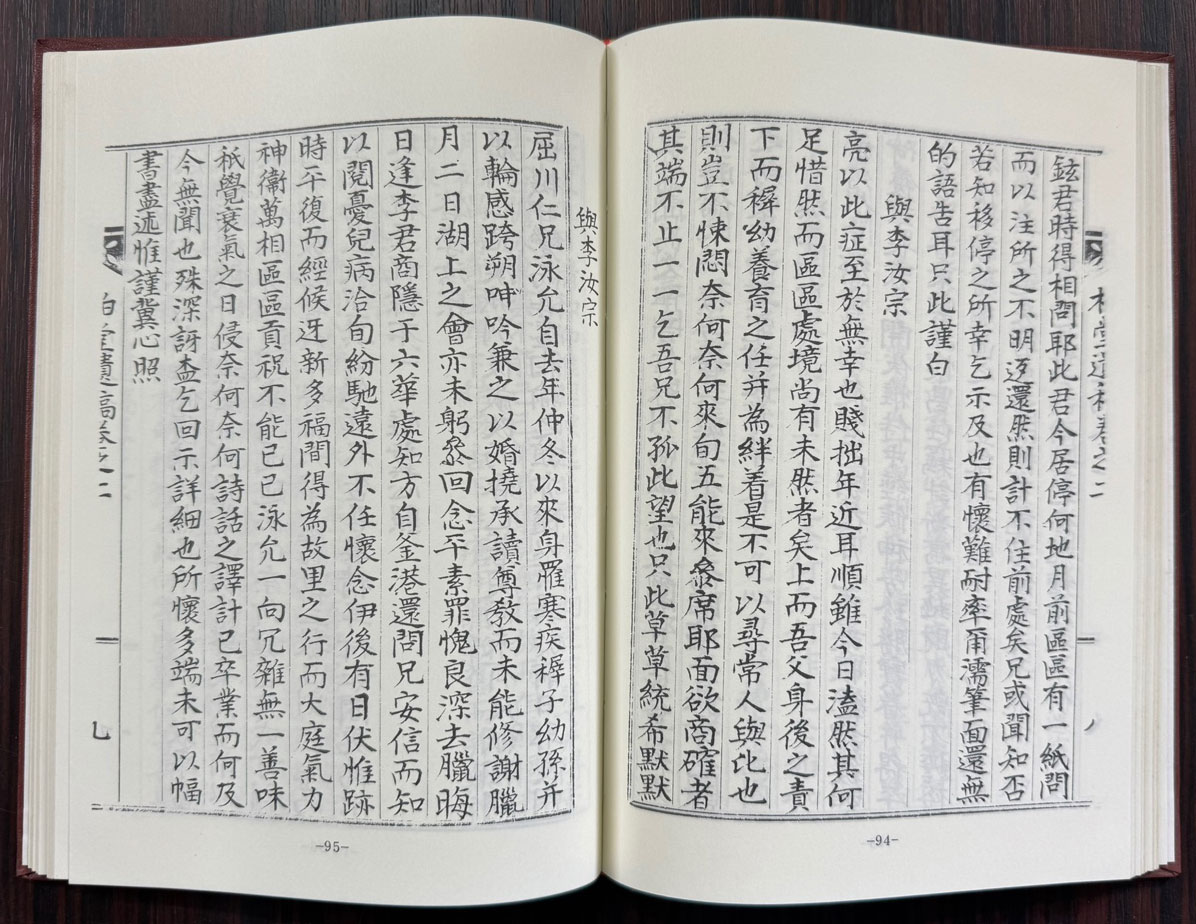 柏堂遺稿卷之二
八
鉉君時得相問耶此君今居停何地月前區區有一紙問
而以注所之不明迓還然則計不住前處矣兄或聞知否
若知移停之所幸乞示及也有懷難耐率爾濡筆面還無
的語告耳只此謹白
與李汝宗
亮以此症至於無幸也賤拙年近耳順雖今日溘然其何
足惜然而區區處境尚有未然者矣上而吾父身後之責
下而穉幼養育之任并為絆着是不可以尋常人與比也
則豈不悚悶奈何奈何來旬五能來叅席耶面欲商確者
其端不止一一乞吾兄不孤此望也只此草草統希默默
-94-
與李汝宗
屈川仁兄泳允自去年仲冬以來身罹寒疾穉子幼孫并
以輪感跨朔呻吟兼之以婚撓承讀尊教而未能修謝臘
月二日湖上之會亦未躬叅回念平素罪愧良深去臘晦
日逢李君商隱于六華處知方自釜港還問兄安信而知
以閱憂兒病洽旬紛馳遠外不任懷念伊後有日伏惟跡
時平復而經候迓新多福間得為故里之行而大庭氣力
神衛萬相區區貢祝不能已已泳允一向冗雜無一善味
祇覺衰氣之日侵奈何奈何詩話之譯計已卒業而何及
今無聞也殊深訝盍乞回示詳細也所懷多端未可以幅
書盡述惟謹冀心照
柏堂遺稿卷之二
七
-95-